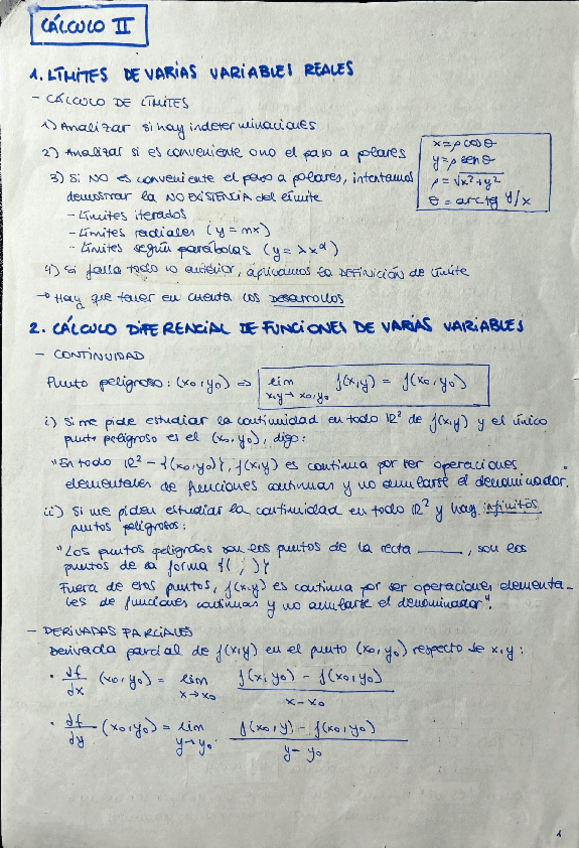 CÁLCULO II
1. LÍMITES DE VARIAS VARIABLES REALES
- CÁLCULO DE LÍMITES
1) Analizar si hay indeterminaciones
2) Analizar si es conveniente o no el paso a polares
x=ρ cos θ
y=ρ sen θ
ρ = √x²+y²
θ = arctg y/x
3) Si NO es conveniente el paso a polares, intentamos
demostrar la NO EXISTENCIA del límite
- Límites iterados
- Límites radiales (y = mx)
- Límites según parábolas (y = λx^α)
4) Si falla todo lo anterior, aplicamos la DEFINICIÓN de límite
→ Hay que tener en cuenta los desarrollos
2. CÁLCULO DIFERENCIAL DE FUNCIONES DE VARIAS VARIABLES
- CONTINUIDAD
Punto peligroso: (x0, y0) ⇒ lim x,y→x0,y0 f(x,y) = f(x0, y0)
i) Si me pide estudiar la continuidad en todo ℝ² de f(x,y) y el único
punto peligroso es el (x0, y0), digo:
"En todo ℝ² - {(x0,y0)}, f(x,y) es continua por ser operaciones
elementales de funciones continuas y no anularse el denominador.
ii) Si me piden estudiar la continuidad en todo ℝ² y hay infinitos
puntos peligrosos:
"Los puntos peligrosos son los puntos de la recta ____, son los
puntos de la forma {( , )}
Fuera de esos puntos, f(x,y) es continua por ser operaciones elementa-
les de funciones continuas y no anularse el denominador".
- DERIVADAS PARCIALES
Derivada parcial de f(x,y) en el punto (x0, y0) respecto de x, y:
· df/dx (x0, y0) = lim x→x0 f(x, y0) - f(x0, y0) / x - x0
· df/dy (x0, y0) = lim y→y0 f(x0, y) - f(x0, y0) / y - y0
1